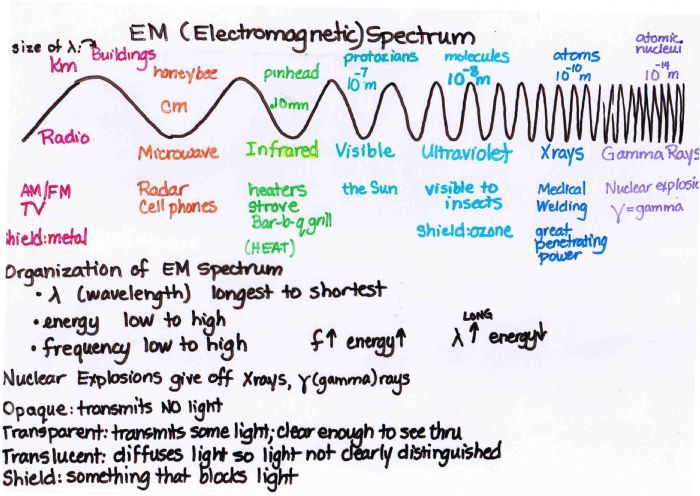 EM (Electromagnetic) Spectrum
size of λ:
Km
Buildings
honeybee
cm
pinhead
.10mm
protozians
10⁻⁷ m
molecules
10⁻⁸ m
atoms
10⁻¹⁰ m
atomic
nucleui
10⁻¹⁴ m
Radio
Microwave
Infrared
Visible
Ultraviolet
Xrays
Gamma Rays
AM/FM
TV
Shield:metal
Radar
Cell phones
heaters
strove
Bar-b-q grill
(HEAT)
the Sun
visible to
insects
shield:ozone
Medical
Welding
great
penetrating
power
Nuclear explosio
γ=gamma
Organization of EM Spectrum
• λ (wavelength) longest to shortest
• energy low to high
• frequency low to high f↑ energy↑ LONG λ↑ energy↓
Nuclear Explosions give off Xrays, γ(gamma)rays
Opaque: transmits NO light
Transparent: transmits some light; clear enough to see thru
Translucent: diffuses light so light not clearly distinguished
Shield: something that blocks light